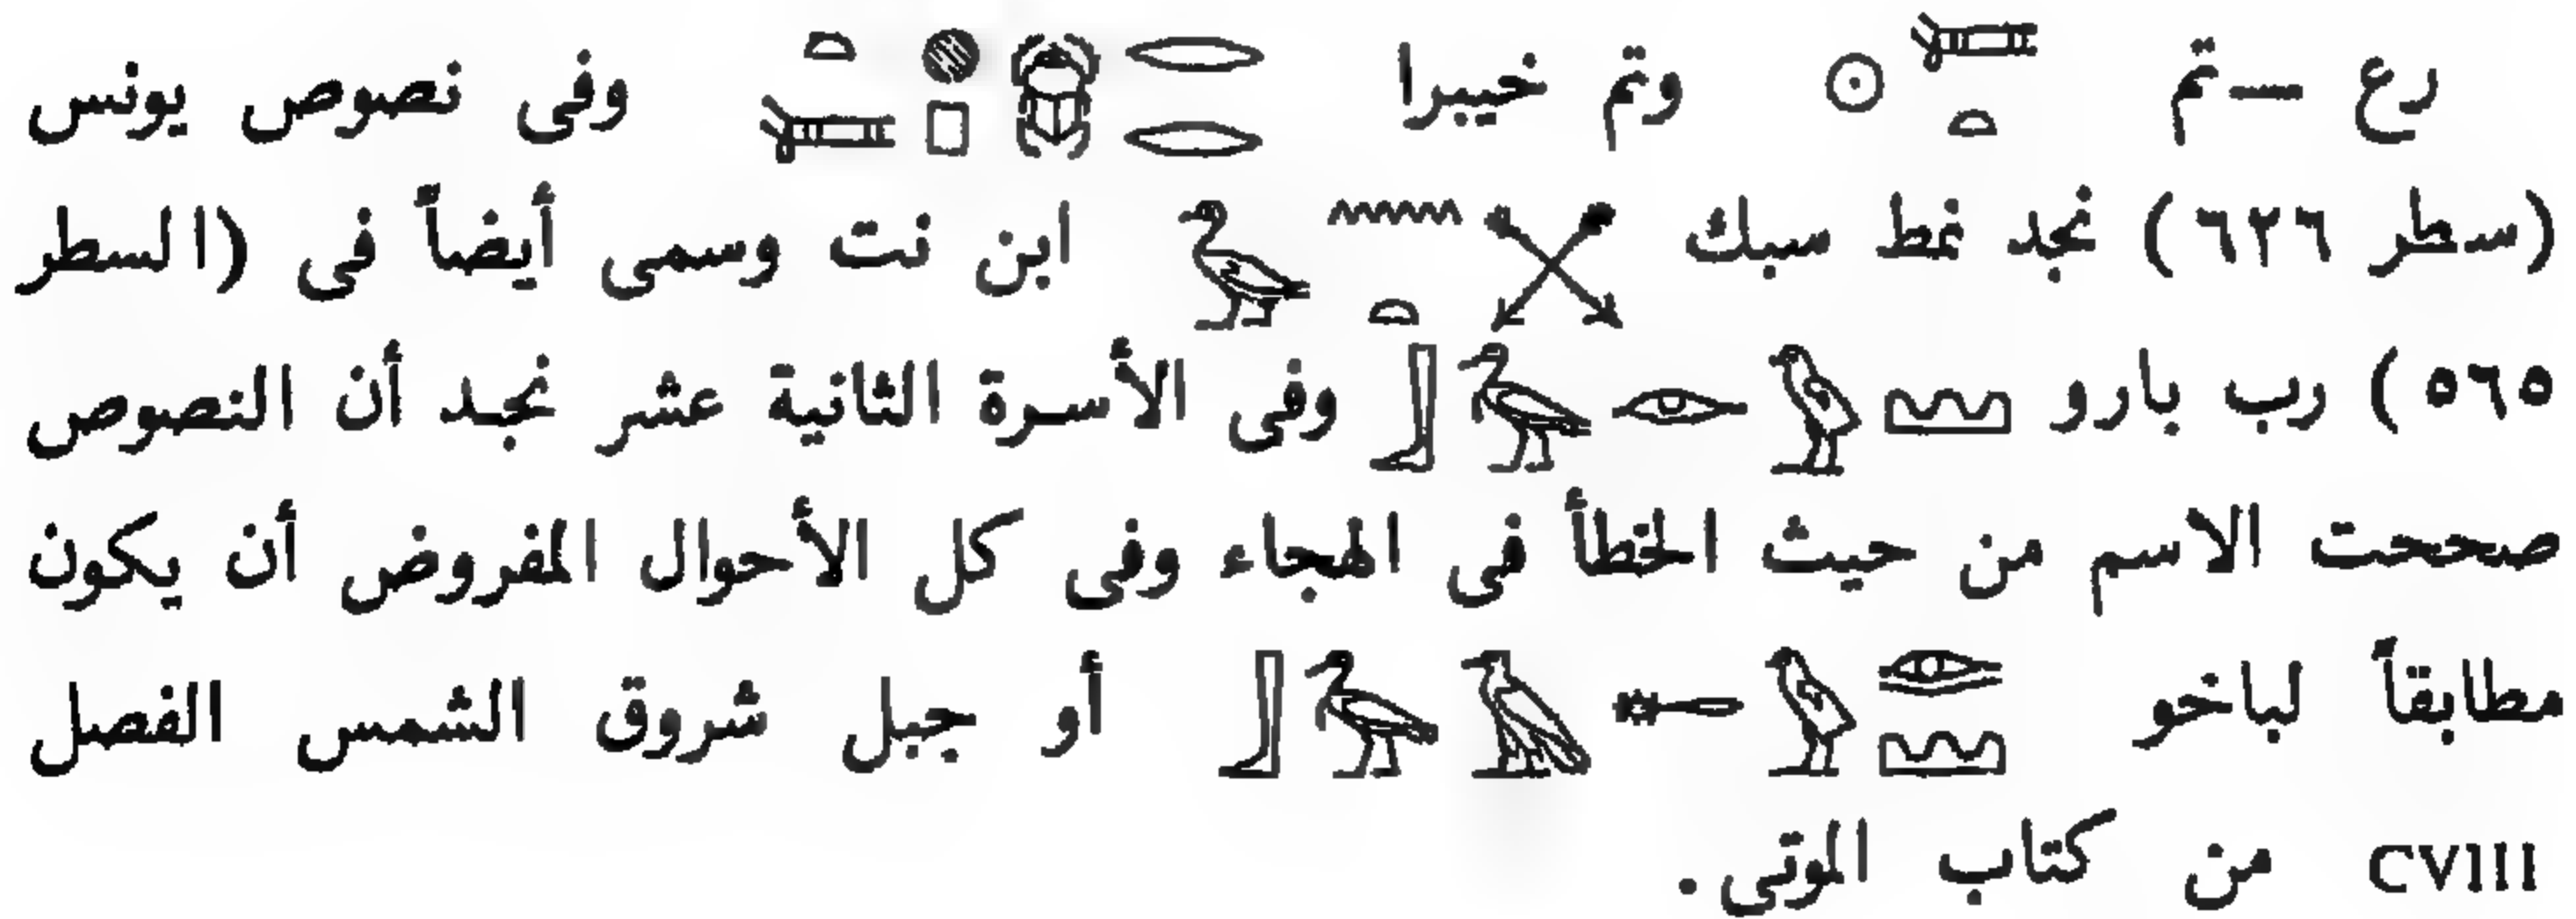 رع — تم 𓍃𓏏𓇳 وتم خيبرا 𓏏𓍃𓐍𓊪𓆣𓂋𓂋 وفى نصوص يونس
(سطر ٦٢٦) نجد نمط سبك ابن نت وسمى أيضاً فى (السطر
٥٦٥) رب بارو وفى الأسرة الثانية عشر نجد أن النصوص
صححت الاسم من حيث الخطأ فى الهجاء وفى كل الأحوال المفروض أن يكون
مطابقاً لباخو أو جبل شروق الشمس الفصل
CVIII من كتاب الموتى.